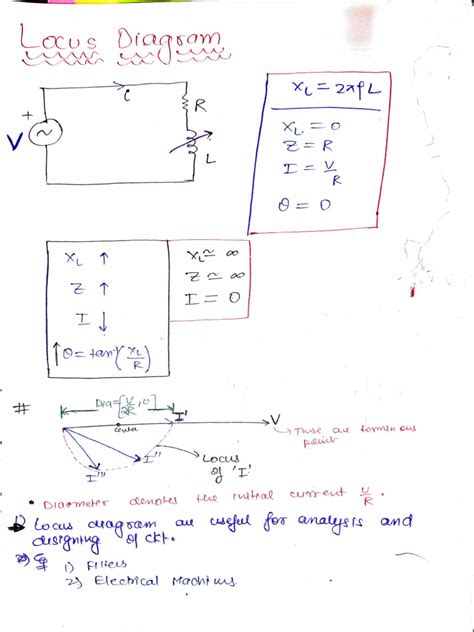 Locus Diagram
i
+
V
R
L
XL = 2πfL
XL = 0
Z = R
I = V/R
θ = 0
XL ↑
Z ↑
I ↓
↑ θ = tan⁻¹(XL/R)
XL ≃ ∞
Z ≃ ∞
I = 0
#
Dia=[V/2R, 0]
I'
V
center
These are terminous
point
I''
I'''
Locus
of 'I'
• Diameter denotes the initial current V/R.
1) Locus diagram are useful for analysis and
designing of ckt.
2) eg
1) Filters
2) Electrical Machines